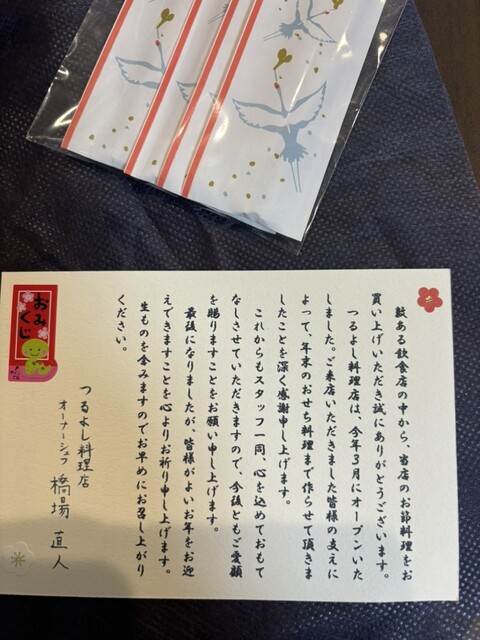 数ある飲食店の中から、当店のお節料理をお
買い上げいただき誠にありがとうございます。
つるよし料理店は、今年3月にオープンいた
しました。ご来店いただきました皆様の支えに
よって、年末のおせち料理まで作らせて頂きま
したことを深く感謝申し上げます。
これからもスタッフ一同、心を込めておもて
なしさせていただきますので、今後ともご愛顧
を賜りますことをお願い申し上げます。
最後になりましたが、皆様がよいお年をお迎
えできますことを心よりお祈り申し上げます。
生ものを含みますのでお早めにお召し上がり
ください。
つるよし料理店
オーナーシェフ 橋場 直人
おみくじ